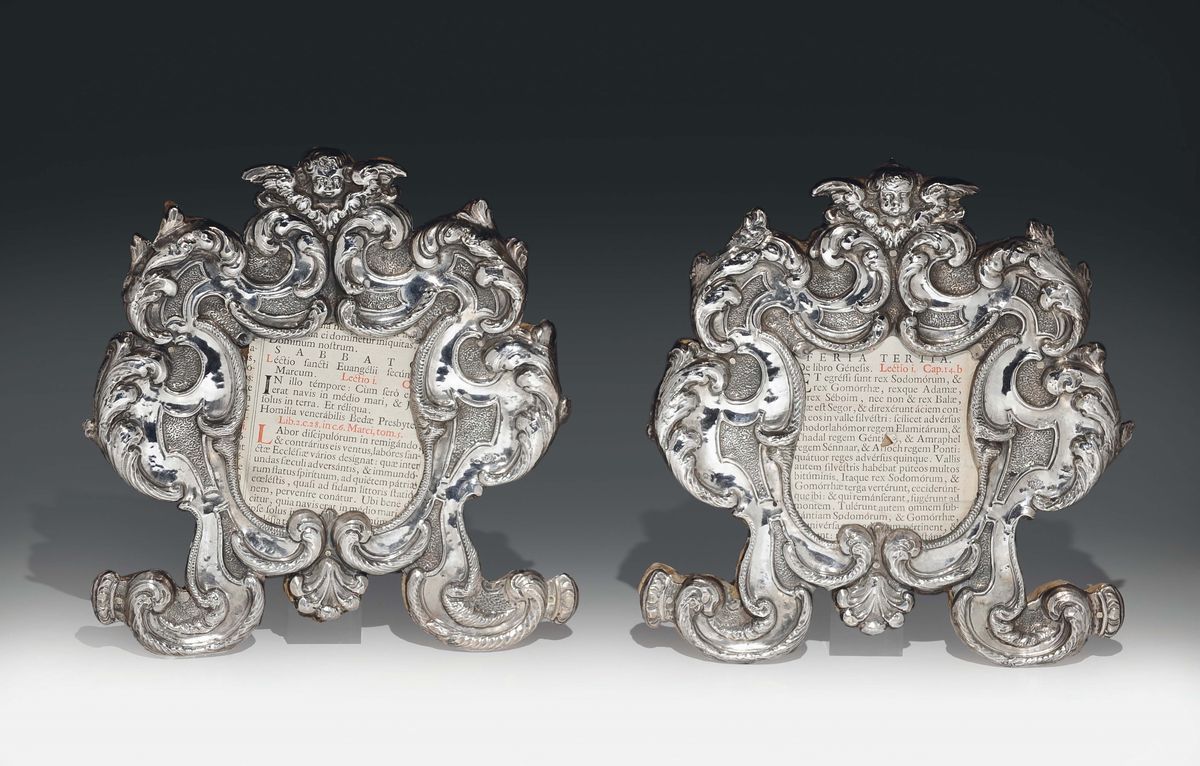 et dominetur iniquitas
Dominum nostrum.
SABBAT
Lectio sancti Euangélii secún
Marcum. Lectio i.
IN illo témpore: Cùm serò
erat navis in médio mari, &
solus in terra. Et réliqua.
Homilia venerábilis Bedæ Presbyte
Lib.2.c.28. in c.6. Marci, tom.5.
LAbor discipulórum in remigándo
& contrárius eis ventus, labóres san-
ctæ Ecclésiæ várias designat: quæ inter
undas sæculi adversántis, & immundó-
rum flatus spirítuum, ad quiétem pátriæ
cœléstis, quasi ad fidam líttoris statió
nem, perveníre conátur. Ubi bene
citur, quia navis erat in médio mari
pse solus
FERIA TERTIA.
De libro Génesis. Lectio i. Cap.14.b
ET egréssi sunt rex Sodomórum, &
rex Gomórrhæ, rexque Adamæ,
& rex Séboim, nec non & rex Balæ
æ est Segor, & direxérunt áciem con
eos in valle silvéstri: scílicet advérsus
hodorlahómor regem Elamitárum, &
hadal regem Géntium, & Amraphel
regem Sénnaar, & Arioch regem Ponti:
quátuor reges advérsus quinque. Vallis
autem silvéstris habébat púteos multos
bitúminis. Itaque rex Sodomórum, &
Gomórrhæ terga vertérunt, cecidérunt-
que ibi: & qui remánserant, fugérunt ad
montem. Tulérunt autem omnem sub-
stántiam Sodomórum, & Gomórrhæ
univérsa pértinent,